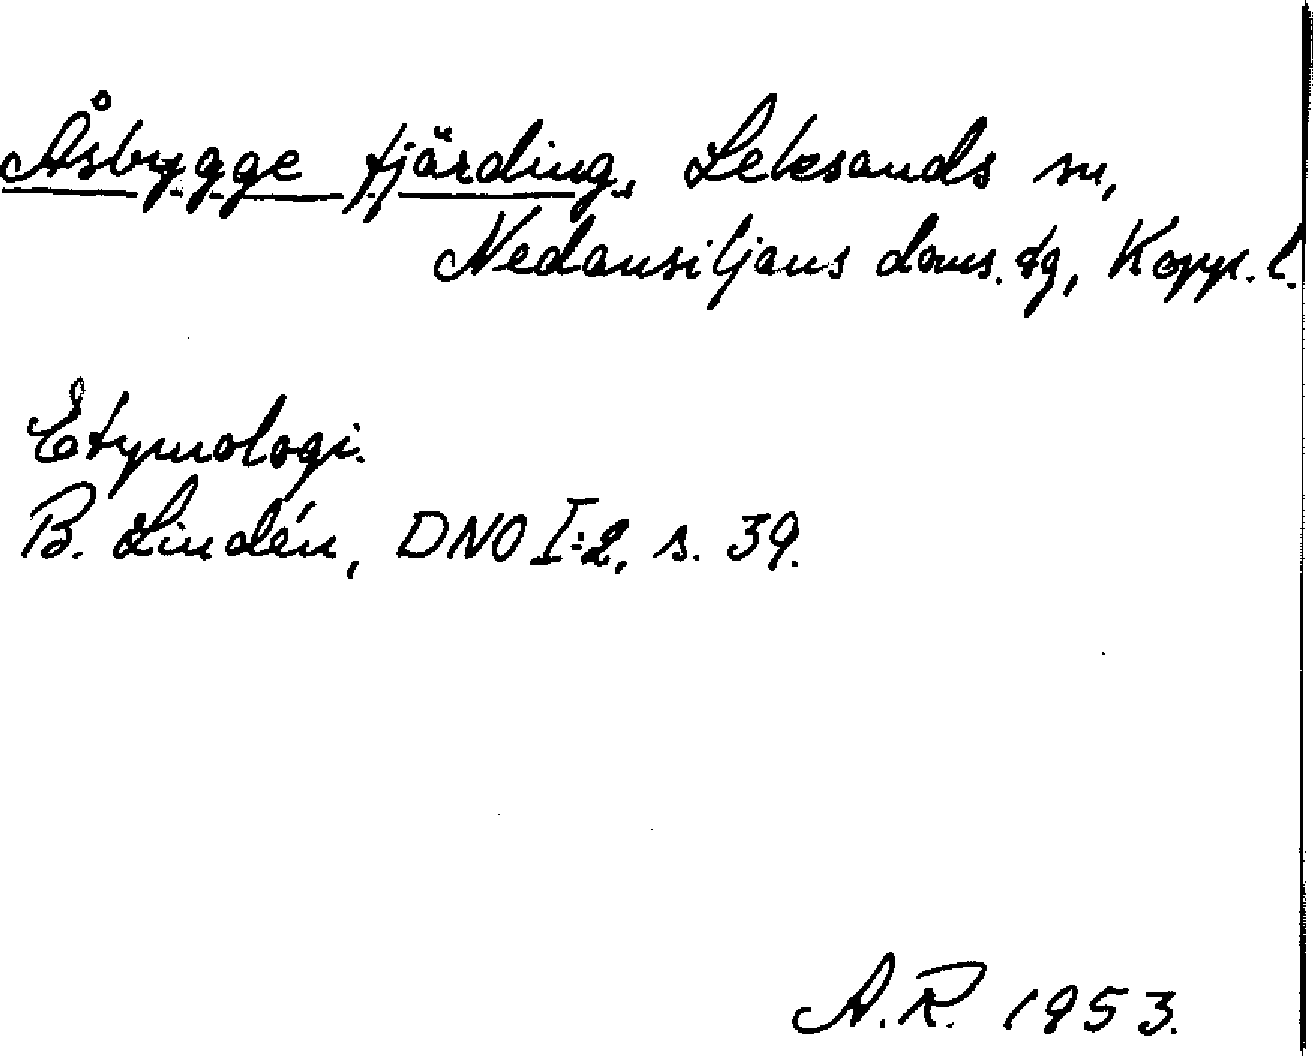 Åsbygge fjärding, Leksands sn,
Nedansiljans doms. tg, Kopp. l.
Etymologi.
B. Lindén, DNO I:2, s. 39.
A.R. 1953.